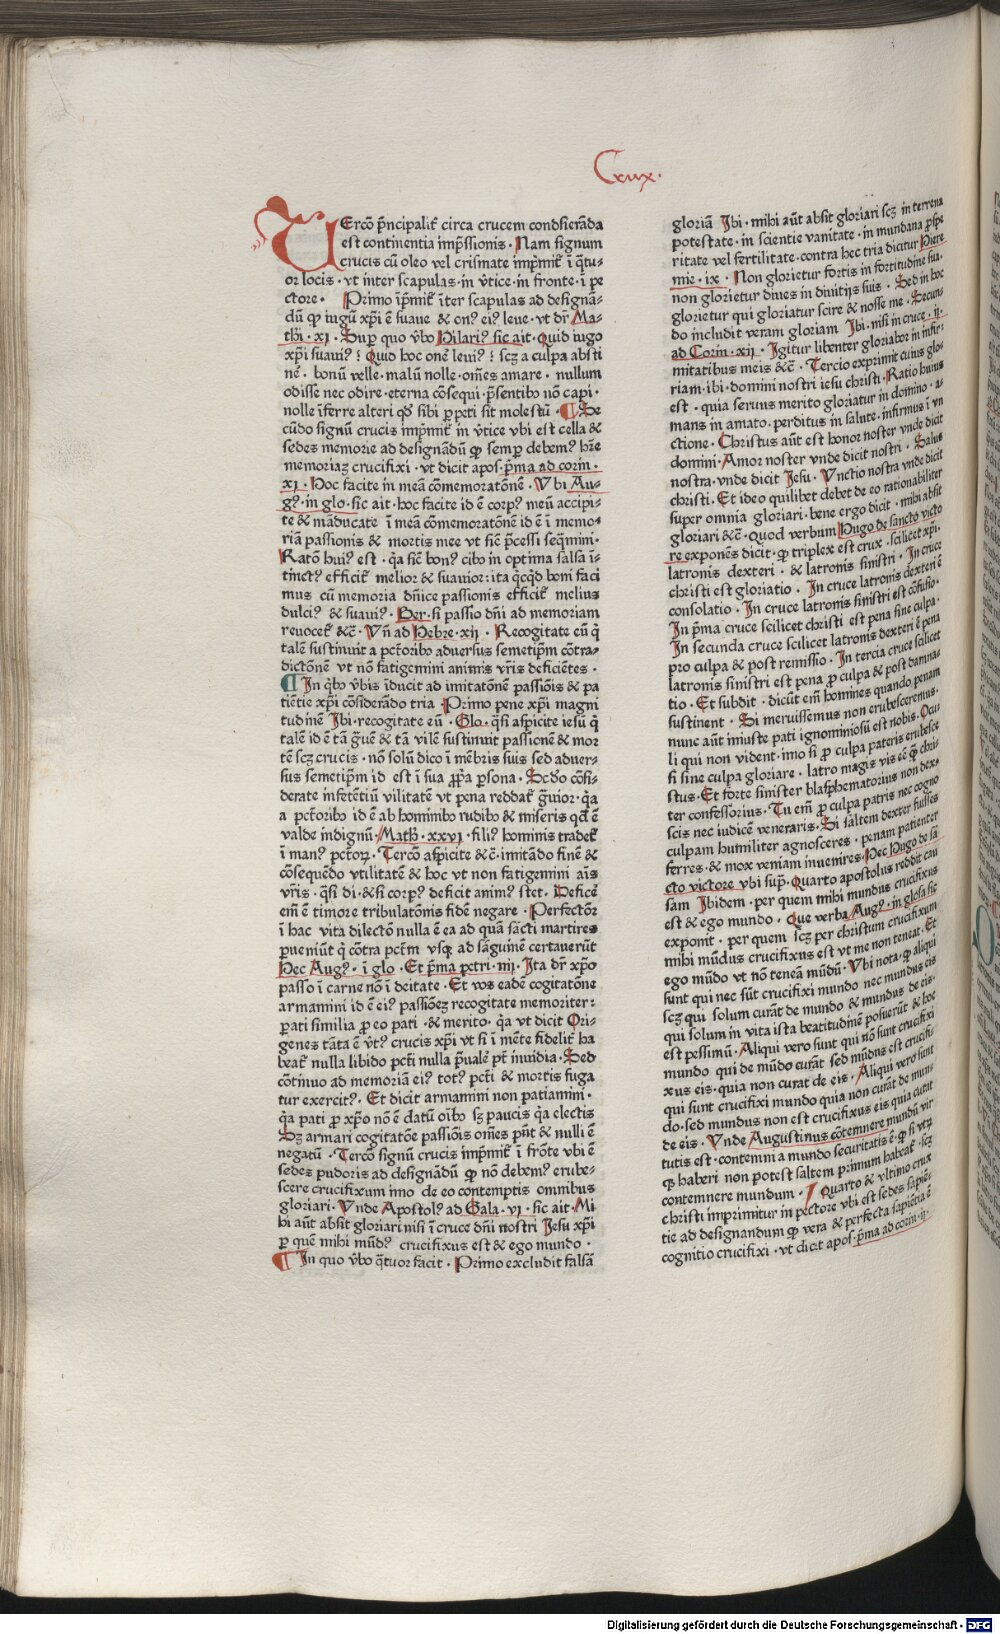 Crux.
TErcõ p̃ncipalit̃ circa crucem condsierãda
est continentia imp̃ssionis . Nam signum
crucis cũ oleo vel crismate imp̃mit̃ ĩ q̃tu-
or locis . vt inter scapulas . in v̾tice . in fronte . ĩ pe
ctore . Primo ĩp̃mit̃ ĩter scapulas ad designã-
dũ ꝙ iugũ xp̃i ẽ suaue & onꝰ eiꝰ leue . vt dr̃ Ma-
thi . xi . Sup̱ quo v̾bo Hilariꝰ sic ait . Quid iugo
xp̃i suauiꝰ ? Quid hoc onẽ leuiꝰ ? scꝫ a culpa absti
nẽ . bonũ velle . malũ nolle . om̃es amare . nullum
odisse nec odire . eterna cõsequi . p̃sentibꝰ nõ capi .
nolle ĩferre alteri qd̃ sibi p̱peti sit molestũ . ¶ Se
cũdo signũ crucis imp̃mit̃ in v̾tice vbi est cella &
sedes memorie ad designãdũ ꝙ semp̱ debemꝰ hr̃e
memoriaꝫ crucifixi . vt dicit apos . p̃ma ad corin .
xi . Hoc facite in meã cõmemoratõnẽ . Vbi Au-
gꝰ . in glo . sic ait . hoc facite id ẽ corpꝰ meũ accipi-
te & mãducate ĩ meã cõmemoratõnẽ id ẽ ĩ memo-
riã passionis & mortis mee vt sic p̃cessi seq̃mini .
Ratõ huiꝰ est . q̃a sic bonꝰ cibꝰ in optima salsa ĩ-
tinctꝰ efficit̃ melior & suauior : ita q̃cq̃d boni faci
mus cũ memoria dñice passionis efficit̃ melius
dulciꝰ & suauiꝰ . Ber . si passio dñi ad memoriam
reuocet̃ &c̃ . Vñ ad Hebre . xii . Recogitate eũ q̃
talẽ sustinuit a pctoribꝰ aduersus semetip̃m cõtra-
dictõnẽ vt nõ fatigemini animis vr̃is deficiẽtes .
¶ In q̃bꝰ v̾bis ĩducit ad imitatõnẽ passiõis & pa
tiẽtie xp̃i cõsiderãdo tria . Primo pene xp̃i magni
tudinẽ Ibi . recogitate eũ . Glo . q̃si aspicite iesũ q̃
talẽ id ẽ tã g̃uẽ & tã vilẽ sustinuit passionẽ & mor
tẽ scꝫ crucis . nõ solũ dico ĩ mẽbris suis sed aduer-
sus semetip̃m id est ĩ sua ꝓp̃a p̱sona . Scd̃o cõsi-
derate inferẽtiũ vilitatẽ vt pena reddat̃ g̃uior . q̃a
a pctoribꝰ id ẽ ab hominibꝰ rudibꝰ & miseris qd̃ ẽ
valde indignũ . Math . xxvi . filiꝰ hominis tradet̃
ĩ manꝰ pctoꝝ . Tercõ aspicite &c̃ . imitãdo finẽ &
cõsequẽdo vtilitatẽ & hoc vt non fatigemini aĩs
vr̃is . q̃si di . & si corpꝰ deficit animꝰ stet . Deficẽ
em̃ ẽ timore tribulatõnis fidẽ negare . Perfectõr
ĩ hac vita dilectõ nulla ẽ ea ad quã sãcti martires
p̱ueniũt q̃ cõtra pctm̃ vsqꝫ ad sãguinẽ certauerũt
Hec Augꝰ . ĩ glo . Et p̃ma petri . iiii . Ita dr̃ xp̃o
passo ĩ carne nõ ĩ deitate . Et vos eadẽ cogitatõne
armamini id ẽ eiꝰ passiõeꝫ recogitate memoriter :
p̱ati similia ꝓ eo pati . & merito . q̃a vt dicit Ori-
genes tãta ẽ v̾tꝰ crucis xp̃i vt si ĩ mẽte fidelit̃ ha
beat̃ nulla libido pcti nulla p̃ualẽ pt̃ inuidia . Sed
cõtinuo ad memoriã eiꝰ totꝰ pcti & mortis fuga
tur exercitꝰ . Et dicit armamini non patiamini .
q̃a pati ꝓ xp̃o nõ ẽ datũ oĩbꝰ sꝫ paucis q̃a electis
Sꝫ armari cogitatõe passiõis om̃es pñt & nulli ẽ
negatũ . Tercõ signũ crucis imp̃mit̃ ĩ frõte vbi ẽ
sedes pudoris ad designãdũ ꝙ nõ debemꝰ erube-
scere crucifixum imo de eo contemptis omnibus
gloriari . Vnde Apostolꝰ ad Gala . vi . sic ait . Mi
hi aũt absit gloriari nisi ĩ cruce dñi nostri Jesu xp̃i
p̱ quẽ mihi mũdꝰ crucifixus est & ego mundo .
¶ In quo v̾bo q̃tuor facit . Primo excludit falsã
gloriã Ibi . mihi aũt absit gloriari scꝫ in terrena
potestate . in scientie vanitate . in mundana p̱spe
ritate vel fertilitate . contra hec tria dicitur Hiere
mie . ix . Non glorietur fortis in fortitudine sua .
non glorietur diues in diuitijs suis . Sed in hoc
glorietur qui gloriatur scire & nosse me . Secun-
do includit veram gloriam Ibi . nisi in cruce . ii .
ad Corin . xii . Igitur libenter gloriabor in infir-
mitatibus meis &c̃ . Tercio exprimit cuius glo-
riam . ibi . domini nostri iesu christi . Ratio huius
est . quia seruus merito gloriatur in domino . a-
mans in amato . perditus in salute . infirmus ĩ vn
ctione . Christus aũt est honor noster vnde dicit
domini . Amor noster vnde dicit nostri . Salus
nostra . vnde dicit Jesu . Vnctio nostra vnde dicit
christi . Et ideo quilibet debet de eo rationabiliter
super omnia gloriari . bene ergo dicit . mihi absit
gloriari &c̃ . Quod verbum Hugo de sancto victo
re exponẽs dicit . ꝙ triplex est crux . scilicet xp̃i .
latronis dexteri . & latronis sinistri . In cruce
christi est gloriatio . In cruce latronis dexteri ẽ
consolatio . In cruce latronis sinistri est cõfusio .
In p̃ma cruce scilicet christi est pena sine culpa .
In secunda cruce scilicet latronis dexteri ẽ pena
pro culpa & post remissio . In tercia cruce scilicet
latronis sinistri est pena ꝓ culpa & post damna-
tio . Et subdit . dicũt em̃ homines quando penam
sustinent . Si meruissemus non erubesceremus .
nunc aũt iniuste pati ignominiosũ est nobis . Ocu
li qui non vident . imo si ꝓ culpa pateris erubesce
si sine culpa gloriare . latro magis vis eẽ q̃ chri-
stus . Et forte sinister blasphematorius non dex-
ter confessorius . Tu em̃ ꝓ culpa patris nec cogno
scis nec iudicẽ veneraris . Si saltem dexter fuisses
culpam humiliter agnosceres . penam patienter
ferres . & mox veniam inuenires . Hec Hugo de sã
cto victore vbi sup̱ . Quarto apostolus reddit cau
sam Ibidem . per quem mihi mundus crucifixus
est & ego mundo . Que verba Augꝰ . in glosa sic
exponit . per quem scꝫ per christum crucifixum
mihi mũdus crucifixus est vt me non teneat . Et
ego mũdo vt nõ teneã mũdũ . Vbi nota . ꝙ aliqui
sunt qui nec sũt crucifixi mundo nec mundus eis
scꝫ qui solum curãt de mundo & mundus de eis .
qui solum in vita ista beatitudinẽ posuerũt & hoc
est pessimũ . Aliqui vero sunt qui nõ sunt crucifixi
mundo qui de mũdo curãt sed mũdus est crucifi-
xus eis . quia non curat de eis . Aliqui vero sunt
qui sunt crucifixi mundo quia non curãt de mun-
do . sed mundus non est crucifixus eis quia curat
de eis . Vnde Augustinus cõtemnere mundũ vir
tutis est . contemni a mundo securitatis ẽ . ꝙ si vtꝝ
qꝫ haberi non potest saltem primum habeat̃ . scꝫ
contemnere mundum . Quarto & vltimo crux
christi imprimitur in pectore vbi est sedes sapiẽ-
tie ad designandum ꝙ vera & perfecta sapiẽtia ẽ
cognitio crucifixi . vt dicit apos . p̃ma ad corin . ii .
Digitalisierung gefördert durch die Deutsche Forschungsgemeinschaft - DFG